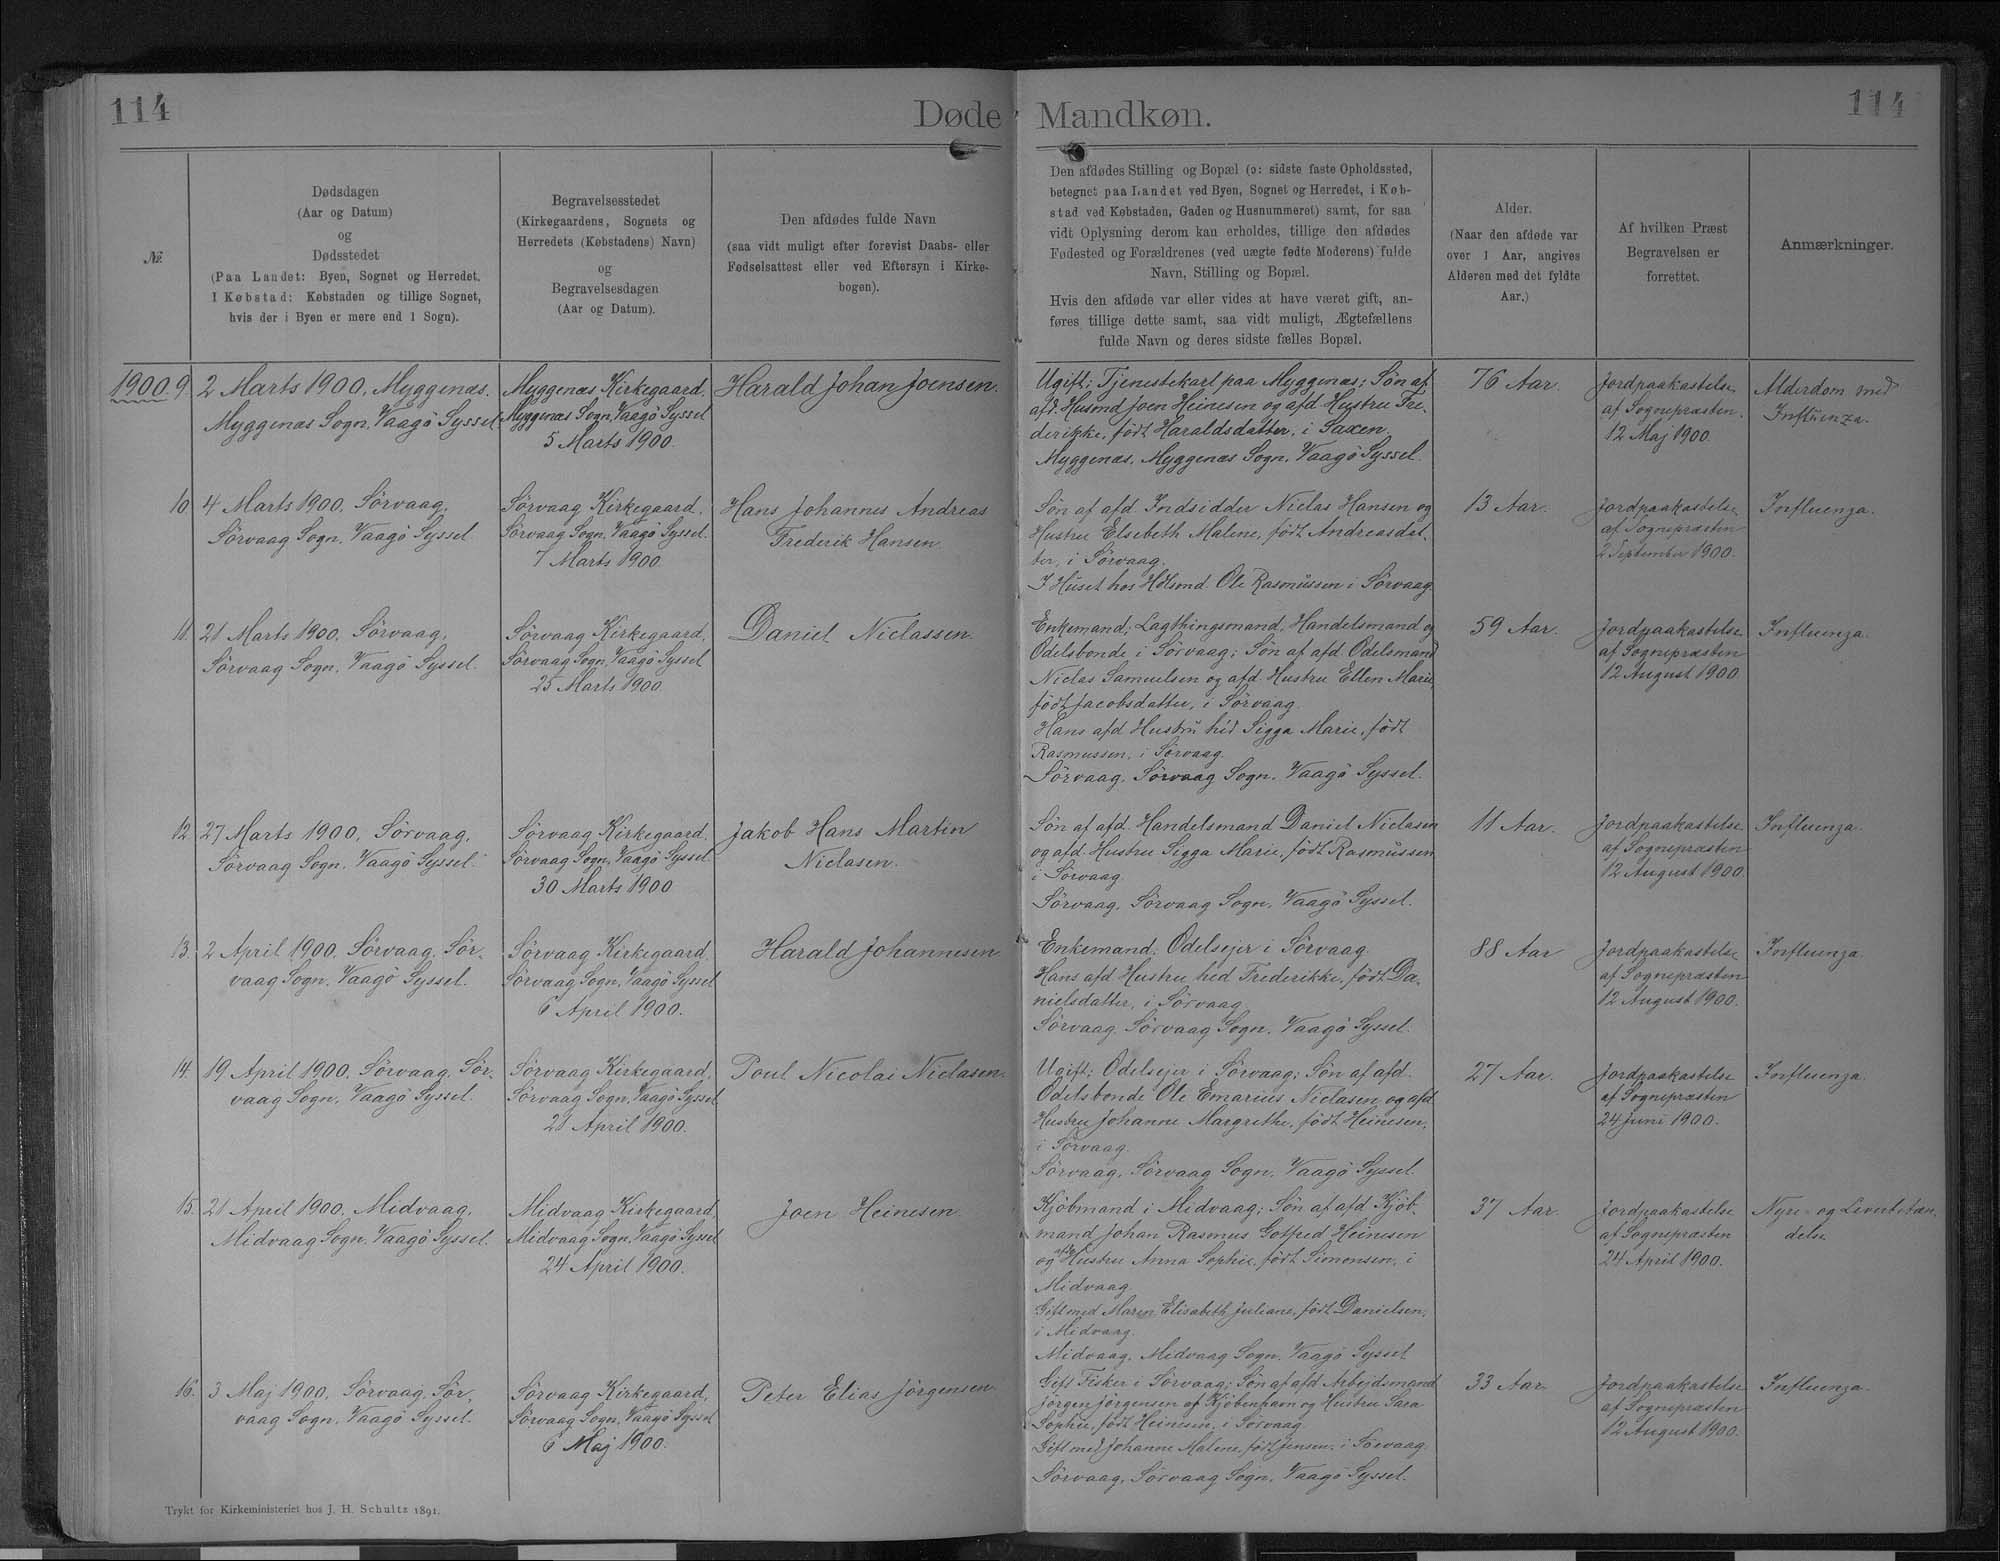 114
Døde Mandkøn.
114
№
Dødsdagen
(Aar og Datum)
og
Dødsstedet
(Paa Landet: Byen, Sognet og Herredet.
I Købstad: Købstaden og tillige Sognet,
hvis der i Byen er mere end 1 Sogn).
Begravelsesstedet
(Kirkegaardens, Sognets og
Herredets (Købstadens) Navn)
og
Begravelsesdagen
(Aar og Datum).
Den afdødes fulde Navn
(saa vidt muligt efter forevist Daabs- eller
Fødselsattest eller ved Eftersyn i Kirke-
bogen).
Den afdødes Stilling og Bopæl (ɔ: sidste faste Opholdssted,
betegnet paa Landet ved Byen, Sognet og Herredet, i Køb-
stad ved Købstaden, Gaden og Husnummeret) samt, for saa
vidt Oplysning derom kan erholdes, tillige den afdødes
Fødested og Forældrenes (ved uægte fødte Moderens) fulde
Navn, Stilling og Bopæl.
Hvis den afdøde var eller vides at have været gift, an-
føres tillige dette samt, saa vidt muligt, Ægtefællens
fulde Navn og deres sidste fælles Bopæl.
Alder.
(Naar den afdøde var
over 1 Aar, angives
Alderen med det fyldte
Aar.)
Af hvilken Præst
Begravelsen er
forrettet.
Anmærkninger.
1900. 9.
2 Marts 1900, Myggenæs.
Myggenæs Sogn, Vaagö Syssel
Myggenæs Kirkegaard,
Myggenæs Sogn, Vaagö Syssel
5 Marts 1900.
Harald Johan Joensen.
Ugift; Tjenestekarl paa Myggenæs; Søn af
afd. Husmd Joen Heinesen og afd Hustru Fre-
derikke, født Haraldsdatter, i Saxen.
Myggenæs, Myggenæs Sogn, Vaagö Syssel.
76 Aar.
Jordpaakastelse
af Sognepræsten.
12 Maj 1900.
Alderdom med
Influenza.
10
4 Marts 1900. Sörvaag,
Sörvaag Sogn, Vaagö Syssel
Sörvaag Kirkegaard,
Sörvaag Sogn, Vaagö Syssel.
7 Marts 1900.
Hans Johannes Andreas
Frederik Hansen.
Søn af afd. Indsidder Niclas Hansen og
Hustru Elsebeth Malene, født Andreasdat-
ter, i Sörvaag.
I Huset hos Hdlsmd Ole Rasmussen i Sörvaag.
13 Aar.
Jordpaakastelse
af Sognepræsten
2 September 1900.
Influenza.
11.
21 Marts 1900, Sörvaag,
Sörvaag Sogn, Vaagö Syssel.
Sörvaag Kirkegaard,
Sörvaag Sogn, Vaagö Syssel
25 Marts 1900.
Daniel Niclassen.
Enkemand; Lagthingsmand, Handelsmand og
Odelsbonde i Sörvaag; Søn af afd Odelsmand
Niclas Samuelsen og afd. Hustru Ellen Marie,
født Jacobsdatter, i Sörvaag.
Hans afd Hustru hed Sigga Marie, født
Rasmussen, i Sörvaag.
Sörvaag, Sörvaag Sogn, Vaagö Syssel.
59 Aar.
Jordpaakastelse
af Sognepræsten
12 August 1900.
Influenza.
12
27 Marts 1900, Sörvaag,
Sörvaag Sogn, Vaagö Syssel.
Sörvaag Kirkegaard,
Sörvaag Sogn, Vaagö Syssel
30 Marts 1900
Jakob Hans Martin
Niclasen.
Søn af afd. Handelsmand Daniel Niclasen
og afd. Hustru Sigga Marie, født Rasmussen
i Sörvaag.
Sörvaag, Sörvaag Sogn, Vaagö Syssel.
11 Aar.
Jordpaakastelse
af Sognepræsten
12 August 1900.
Influenza.
13.
2 April 1900. Sörvaag, Sör-
vaag Sogn, Vaagö Syssel.
Sörvaag Kirkegaard,
Sörvaag Sogn, Vaagö Syssel
6 April 1900.
Harald Johannesen
Enkemand; Odelsejer i Sörvaag.
Hans afd. Hustru hed Frederikke, født Da-
nielsdatter, i Sörvaag.
Sörvaag, Sörvaag Sogn, Vaagö Syssel.
88 Aar
Jordpaakastelse
af Sognepræsten
12 August 1900.
Influenza.
14.
19 April 1900. Sörvaag, Sör-
vaag Sogn, Vaagö Syssel.
Sörvaag Kirkegaard,
Sörvaag Sogn, Vaagö Syssel
21 April 1900.
Poul Nicolai Niclasen.
Ugift; Odelsejer i Sörvaag; Søn af afd.
Odelsbonde Ole Emarius Niclasen og afd
Hustru Johanne Margrethe, født Heinesen,
i Sörvaag.
Sörvaag, Sörvaag Sogn, Vaagö Syssel.
27 Aar.
Jordpaakastelse
af Sognepræsten
24 Juni 1900.
Influenza.
15.
21 April 1900. Midvaag,
Midvaag Sogn, Vaagö Syssel.
Midvaag Kirkegaard,
Midvaag Sogn, Vaagö Syssel
24 April 1900.
Joen Heinesen
Kjöbmand i Midvaag; Søn af afd Kjöb-
mand Johan Rasmus Gotfred Heinesen
og afd Hustru Anna Sophie, født Simonsen, i
Midvaag.
Gift med Maren Elisabeth Juliane, født Danielsen,
i Midvaag.
Midvaag, Midvaag Sogn, Vaagö Syssel
37 Aar.
Jordpaakastelse
af Sognepræsten
24 April 1900.
Nyre- og Leverbetæn-
delse
16.
3 Maj 1900, Sörvaag, Sör-
vaag Sogn, Vaagö Syssel.
Sörvaag Kirkegaard,
Sörvaag Sogn, Vaagö Syssel
6 Maj 1900.
Peter Elias Jörgensen.
Gift Fisker i Sörvaag; Søn af afd Arbejdsmand
Jörgen Jörgensen af Kjöbenhavn og Hustru Sara
Sophie, født Heinesen, i Sörvaag.
Gift med Johanne Malene, født Jensen, i Sörvaag.
Sörvaag, Sörvaag Sogn, Vaagö Syssel.
33 Aar.
Jordpaakastelse
af Sognepræsten
12 August 1900.
Influenza.
Trykt for Kirkeministeriet hos J. H. Schultz 1891.